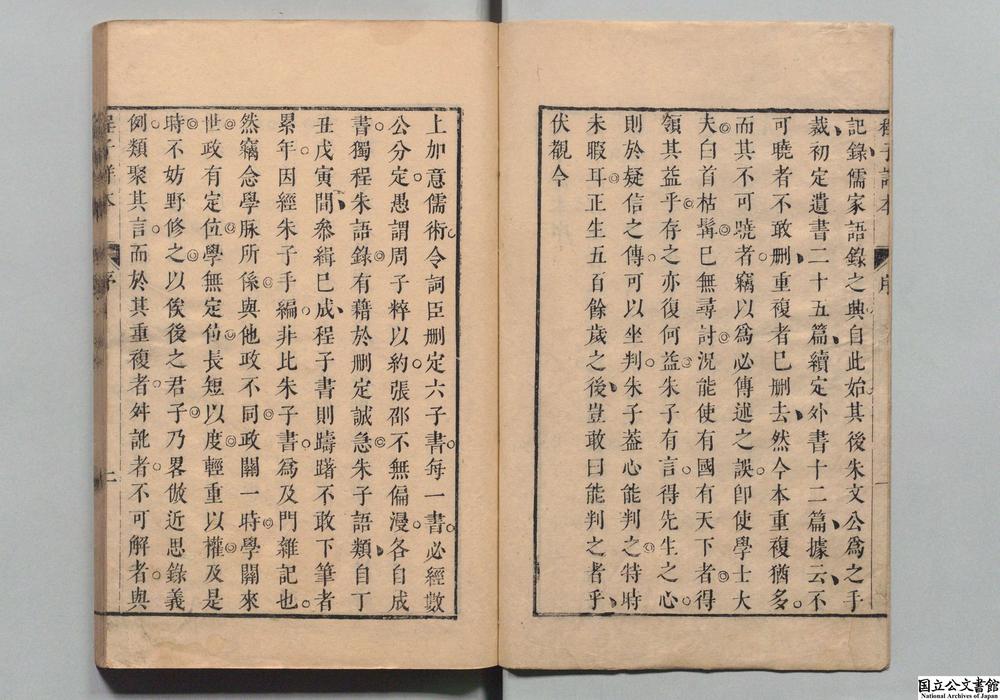 記錄儒家語錄之興自此始其後朱文公爲之手
裁初定遺書二十五篇續定外書十二篇據云不
可曉者不敢删重複者巳删去然今本重複猶多
而其不可曉者竊以爲必傳述之誤卽使學士大
夫白首枯髯巳無尋討況能使有國有天下者得
領其益乎存之亦復何益朱子有言得先生之心
則於疑信之傳可以坐判朱子葢心能判之特時
未暇耳正生五百餘歲之後豈敢曰能判之者乎
伏觀今
上加意儒術令詞臣删定六子書每一書必經數
公分定愚謂周子粹以約張邵不無偏漫各自成
書獨程朱語錄有藉於删定誠急朱子語類自丁
丑戊寅間叅緝巳成程子書則躊躇不敢下筆者
累年因經朱子手編非比朱子書爲及門雜記也
然竊念學脉所係與他政不同政關一時學關來
世政有定位學無定位長短以度輕重以權及是
時不妨野修之以俟後之君子乃畧倣近思錄義
例類聚其言而於其重複者舛訛者不可解者與
程子詳本
序
二
国立公文書館
National Archives of Japan